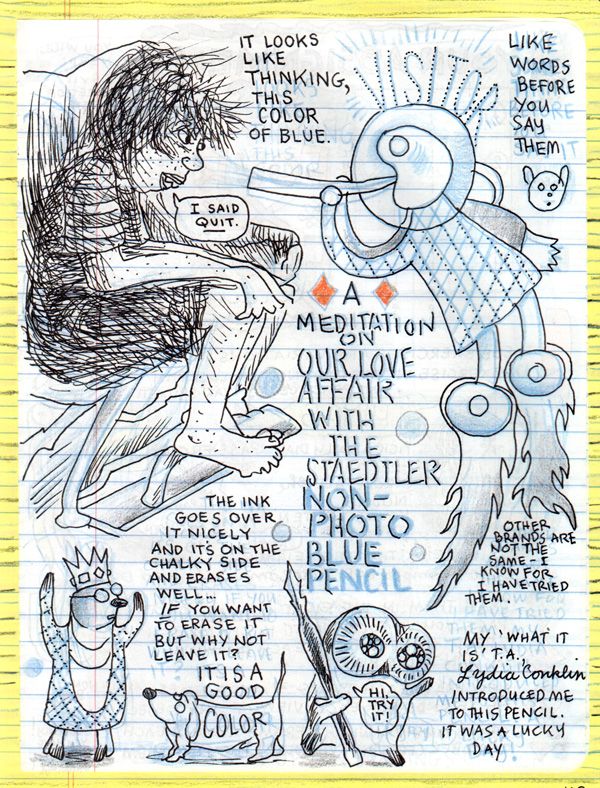 IT LOOKS
LIKE
THINKING,
THIS
COLOR
OF BLUE.
VISITOR
LIKE
WORDS
BEFORE
YOU
SAY
THEM
I SAID
QUIT.
A
MEDITATION
ON
OUR LOVE
AFFAIR
WITH
THE
STAEDTLER
NON-
PHOTO
BLUE
PENCIL
THE INK
GOES OVER
IT NICELY
AND IT'S ON THE
CHALKY SIDE
AND ERASES
WELL...
IF YOU WANT
TO ERASE IT
BUT WHY NOT
LEAVE IT?
IT IS A
GOOD
COLOR
OTHER
BRANDS ARE
NOT THE
SAME - I
KNOW FOR
I HAVE TRIED
THEM.
HI,
TRY
IT!
MY 'WHAT IT
IS' T.A.,
Lydia Conklin
INTRODUCED ME
TO THIS PENCIL.
IT WAS A LUCKY
DAY